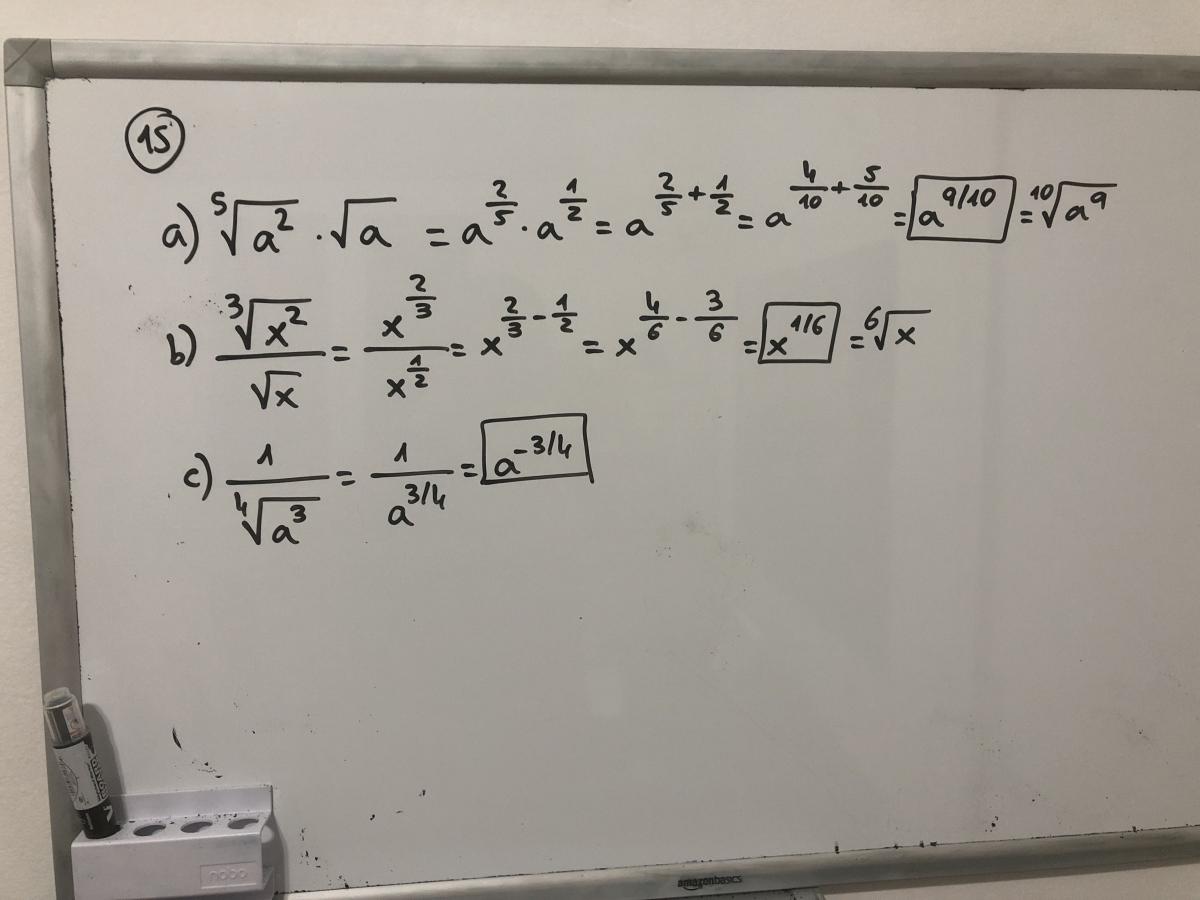 15
a) ⁵√a² · √a = a^(2/5) · a^(1/2) = a^(2/5 + 1/2) = a^(4/10 + 5/10) = a^(9/10) = ¹⁰√a⁹
b) ³√x² / √x = x^(2/3) / x^(1/2) = x^(2/3 - 1/2) = x^(4/6 - 3/6) = x^(1/6) = ⁶√x
c) 1 / ⁴√a³ = 1 / a^(3/4) = a^(-3/4)
nobo
amazonbasics